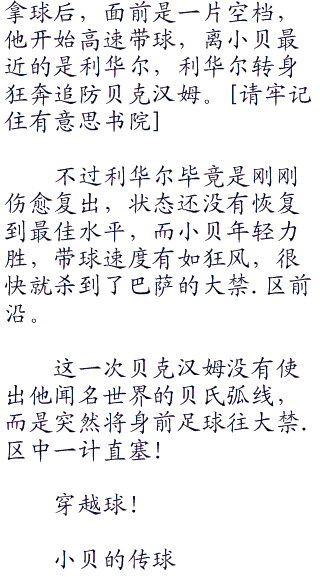 拿球后，面前是一片空档，
他开始高速带球，离小贝最
近的是利华尔，利华尔转身
狂奔追防贝克汉姆。[请牢记
住有意思书院]
不过利华尔毕竟是刚刚
伤愈复出，状态还没有恢复
到最佳水平，而小贝年轻力
胜，带球速度有如狂风，很
快就杀到了巴萨的大禁.区前
沿。
这一次贝克汉姆没有使
出他闻名世界的贝氏弧线，
而是突然将身前足球往大禁.
区中一计直塞！
穿越球！
小贝的传球